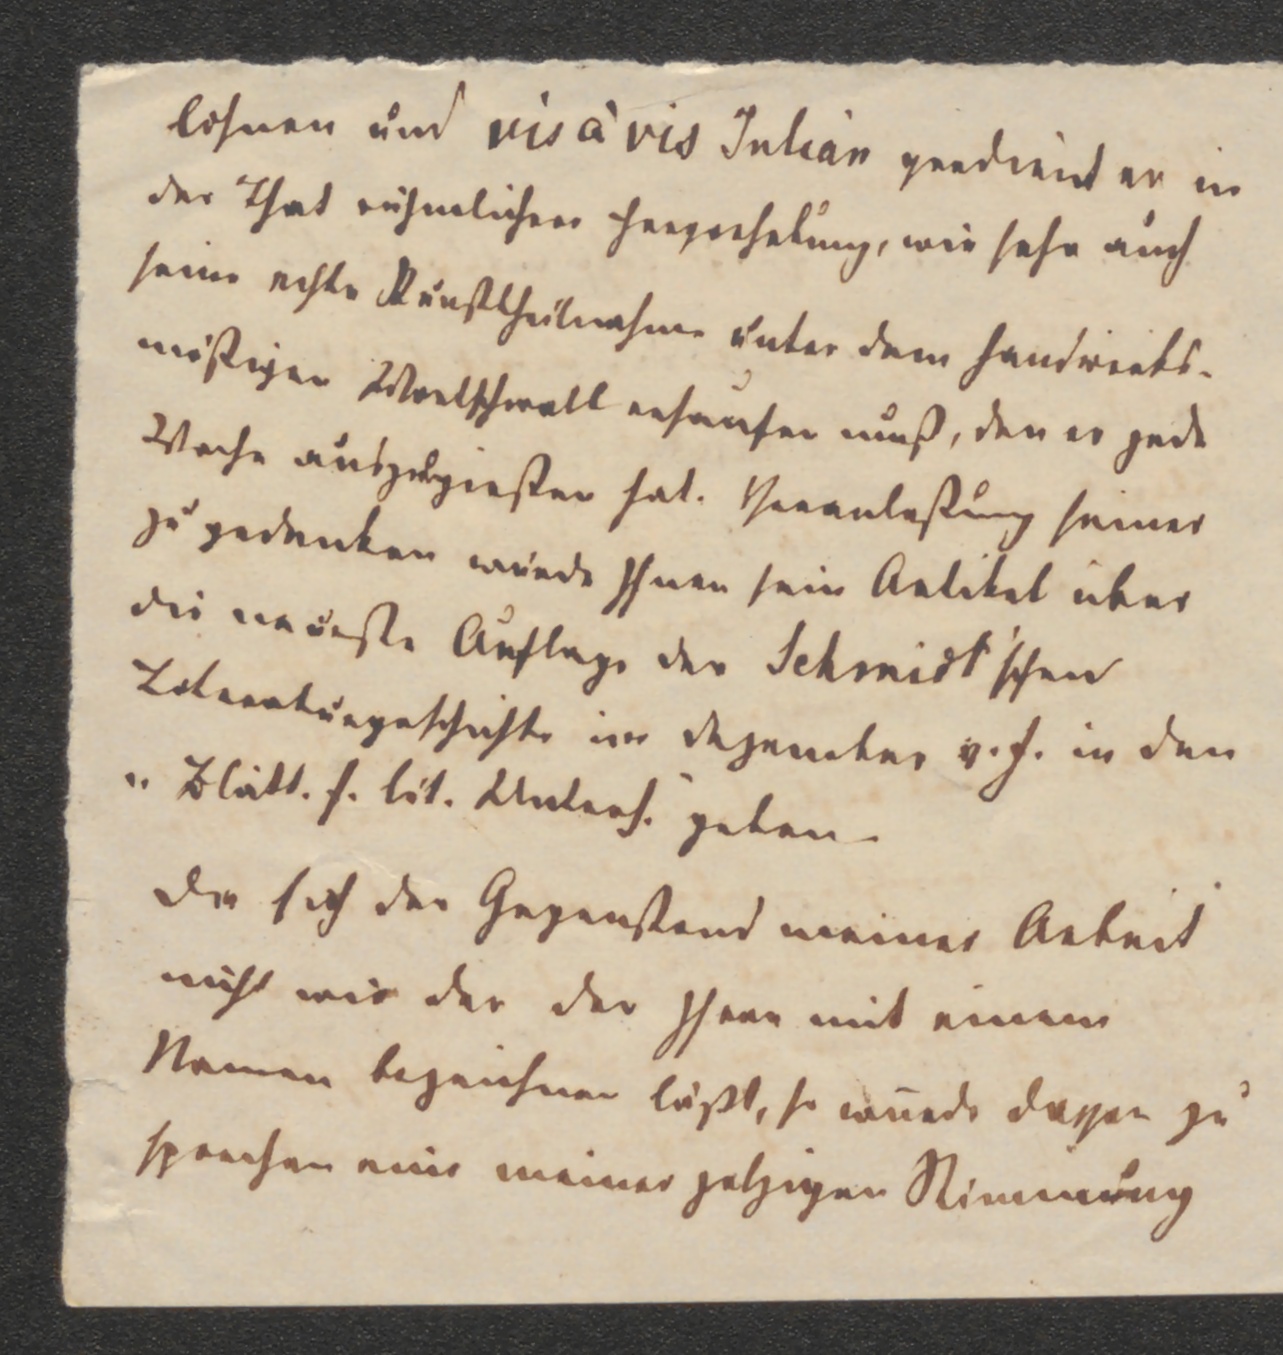 lohnen und vis à vis Julian verdient er in
der That rühmlichere Hervorhebung, wie sehr auch
seine echte Kunsttheilnahme unter dem handwerks-
mäßigen Wortschwall ersaufen muß, den er jede
Woche auszugießen hat. Veranlaßung seiner
zu gedenken wurde Ihnen sein Artikel über
die neueste Auflage der Schmidt'schen
Literaturgeschichte im Dezember v. J. in den
„Blätt. f. lit. Unterh." geben.
Da sich der Gegenstand meiner Arbeit
nicht wie der der Ihren mit einem
Namen bezeichnen läßt, so wurde dessen zu
sprechen eine meiner jetzigen Stimmung